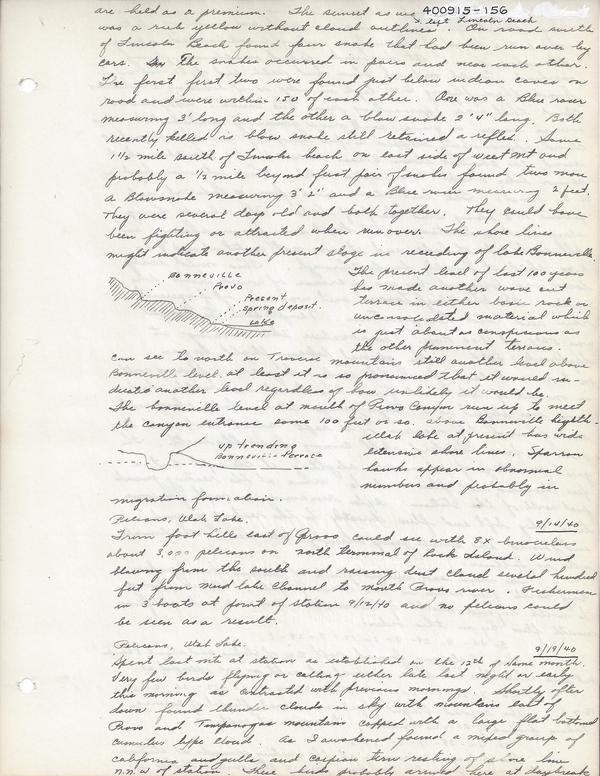 are held as a premium. The sunset as we left Lincoln Beach
400915-156
was a rich yellow without cloud outlines. On road south
of Lincoln Beach found four snake that had been run over by
cars. The snakes occurred in pairs and near each other.
The first first two were found just below indian caves on
road and were within 150' of each other. One was a Blue racer
measuring 3' long and the other a blow snake 2' 4" long. Both
recently killed as blow snake still retained a reflex. Some
1 1/2 mile south of Lincoln beach on east side of west Mt and
probably a 1/2 mile beyond first pair of snakes found two more
a Blowsnake measuring 3' 2" and a Blue racer measuring 2 feet.
They were several days old and both together. They could have
been fighting or attracted when run over. The shore lines
might indicate another present stage in receding of lake Bonneville.
Bonneville
Provo
Present
Spring deposit.
Lake
The present level of last 100 years
has made another wave cut
terrace in either basin rock or
unconsolidated material which
is just about as conspicuous as
the other prominent terraces.
Can see to north on Traverse mountains still another level above
Bonneville level. at least it is so pronounced that it would in-
dicate another level regardless of how unlikely it would be.
The bonneville level at mouth of Provo Canyon run up to meet
the canyon entrance some 100 feet or so. above Bonneville heighth.
up trending
Bonneville Terrace
utah lake at present has wide
extensive shore lines. Sparrow
hawks appear in abnormal
numbers and probably in
migration formation.
Pelicans, Utah Lake.
9/14/40
From foot hills east of Provo could see with 8x binoculars
about 3,000 pelicans on north terminal of Rock Island. Wind
blowing from the south and raising dust cloud several hundred
feet from mud lake Channel to mouth Provo river. Fishermen
in 3 boats at point of station 9/12/40 and no pelicans could
be seen as a result.
Pelicans, Utah Lake.
9/19/40
Spent last nite at station as established on the 12th of same month.
Very few birds flying or calling either late last night or early
this morning as contrasted with previous mornings. Shortly after
down found thunder clouds in sky with mountains east of
Provo and Timpanogas mountain capped with a large flat bottomed
cumulus type cloud. As I awakened found a mixed group of
california and gulls and caspian tern resting of shore line
n.n.w of station. These birds probably arrived here at daybreak